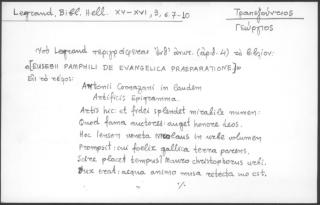 Legrand, Bibl. Hell. XV-XVI, 3, σ. 7-10
Τραπεζούντιος
Γεώργιος
Ὑπὸ Legrand περιγράφεται ὑπ' ἀριθ. 4) τὸ βιβλίον:
«[EUSEBII PAMPHILI DE EVANGELICA PRAEPARATIONE]»
Εἰς τὸ τέλος:
Antonii Cornazani in laudem
Artificis Epigramma.
Artis hic: et fidei splendet mirabile numen:
Quod fama auctores: auget honore deos.
Hoc Ienson veneta Nicolaus in urbe volumen
Prompsit: cui foelix gallica terra parens.
Scire placet tempus? Mauro christophorus urbi.
Dux erat: aequa animo musa retecta suo est.
»  ./.